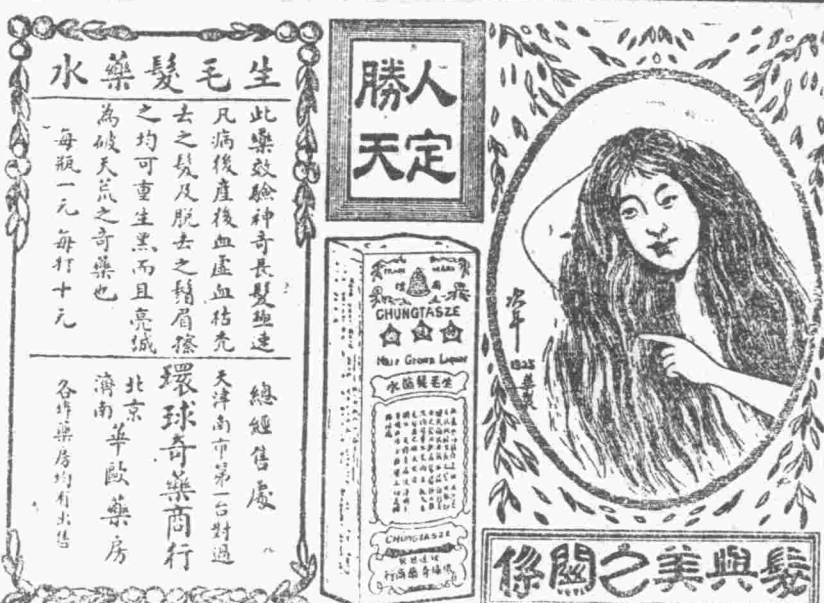 生毛髮藥水
此藥效驗神奇長髮極速
凡病後產後血虛血枯禿
去之髮及脫去之鬚眉擦
之均可重生黑而且亮誠
為破天荒之奇藥也
每瓶一元每打十元
總經售處
天津南市第一台對過
環球奇藥商行
北京
濟南
華歐藥房
各埠藥房均有出售
人定
勝天
TRADE MARK
CHUNGTASZE
Hair Grown Liquor
生毛髮藥水
CHUNGTASZE
1925
髮與美之關係